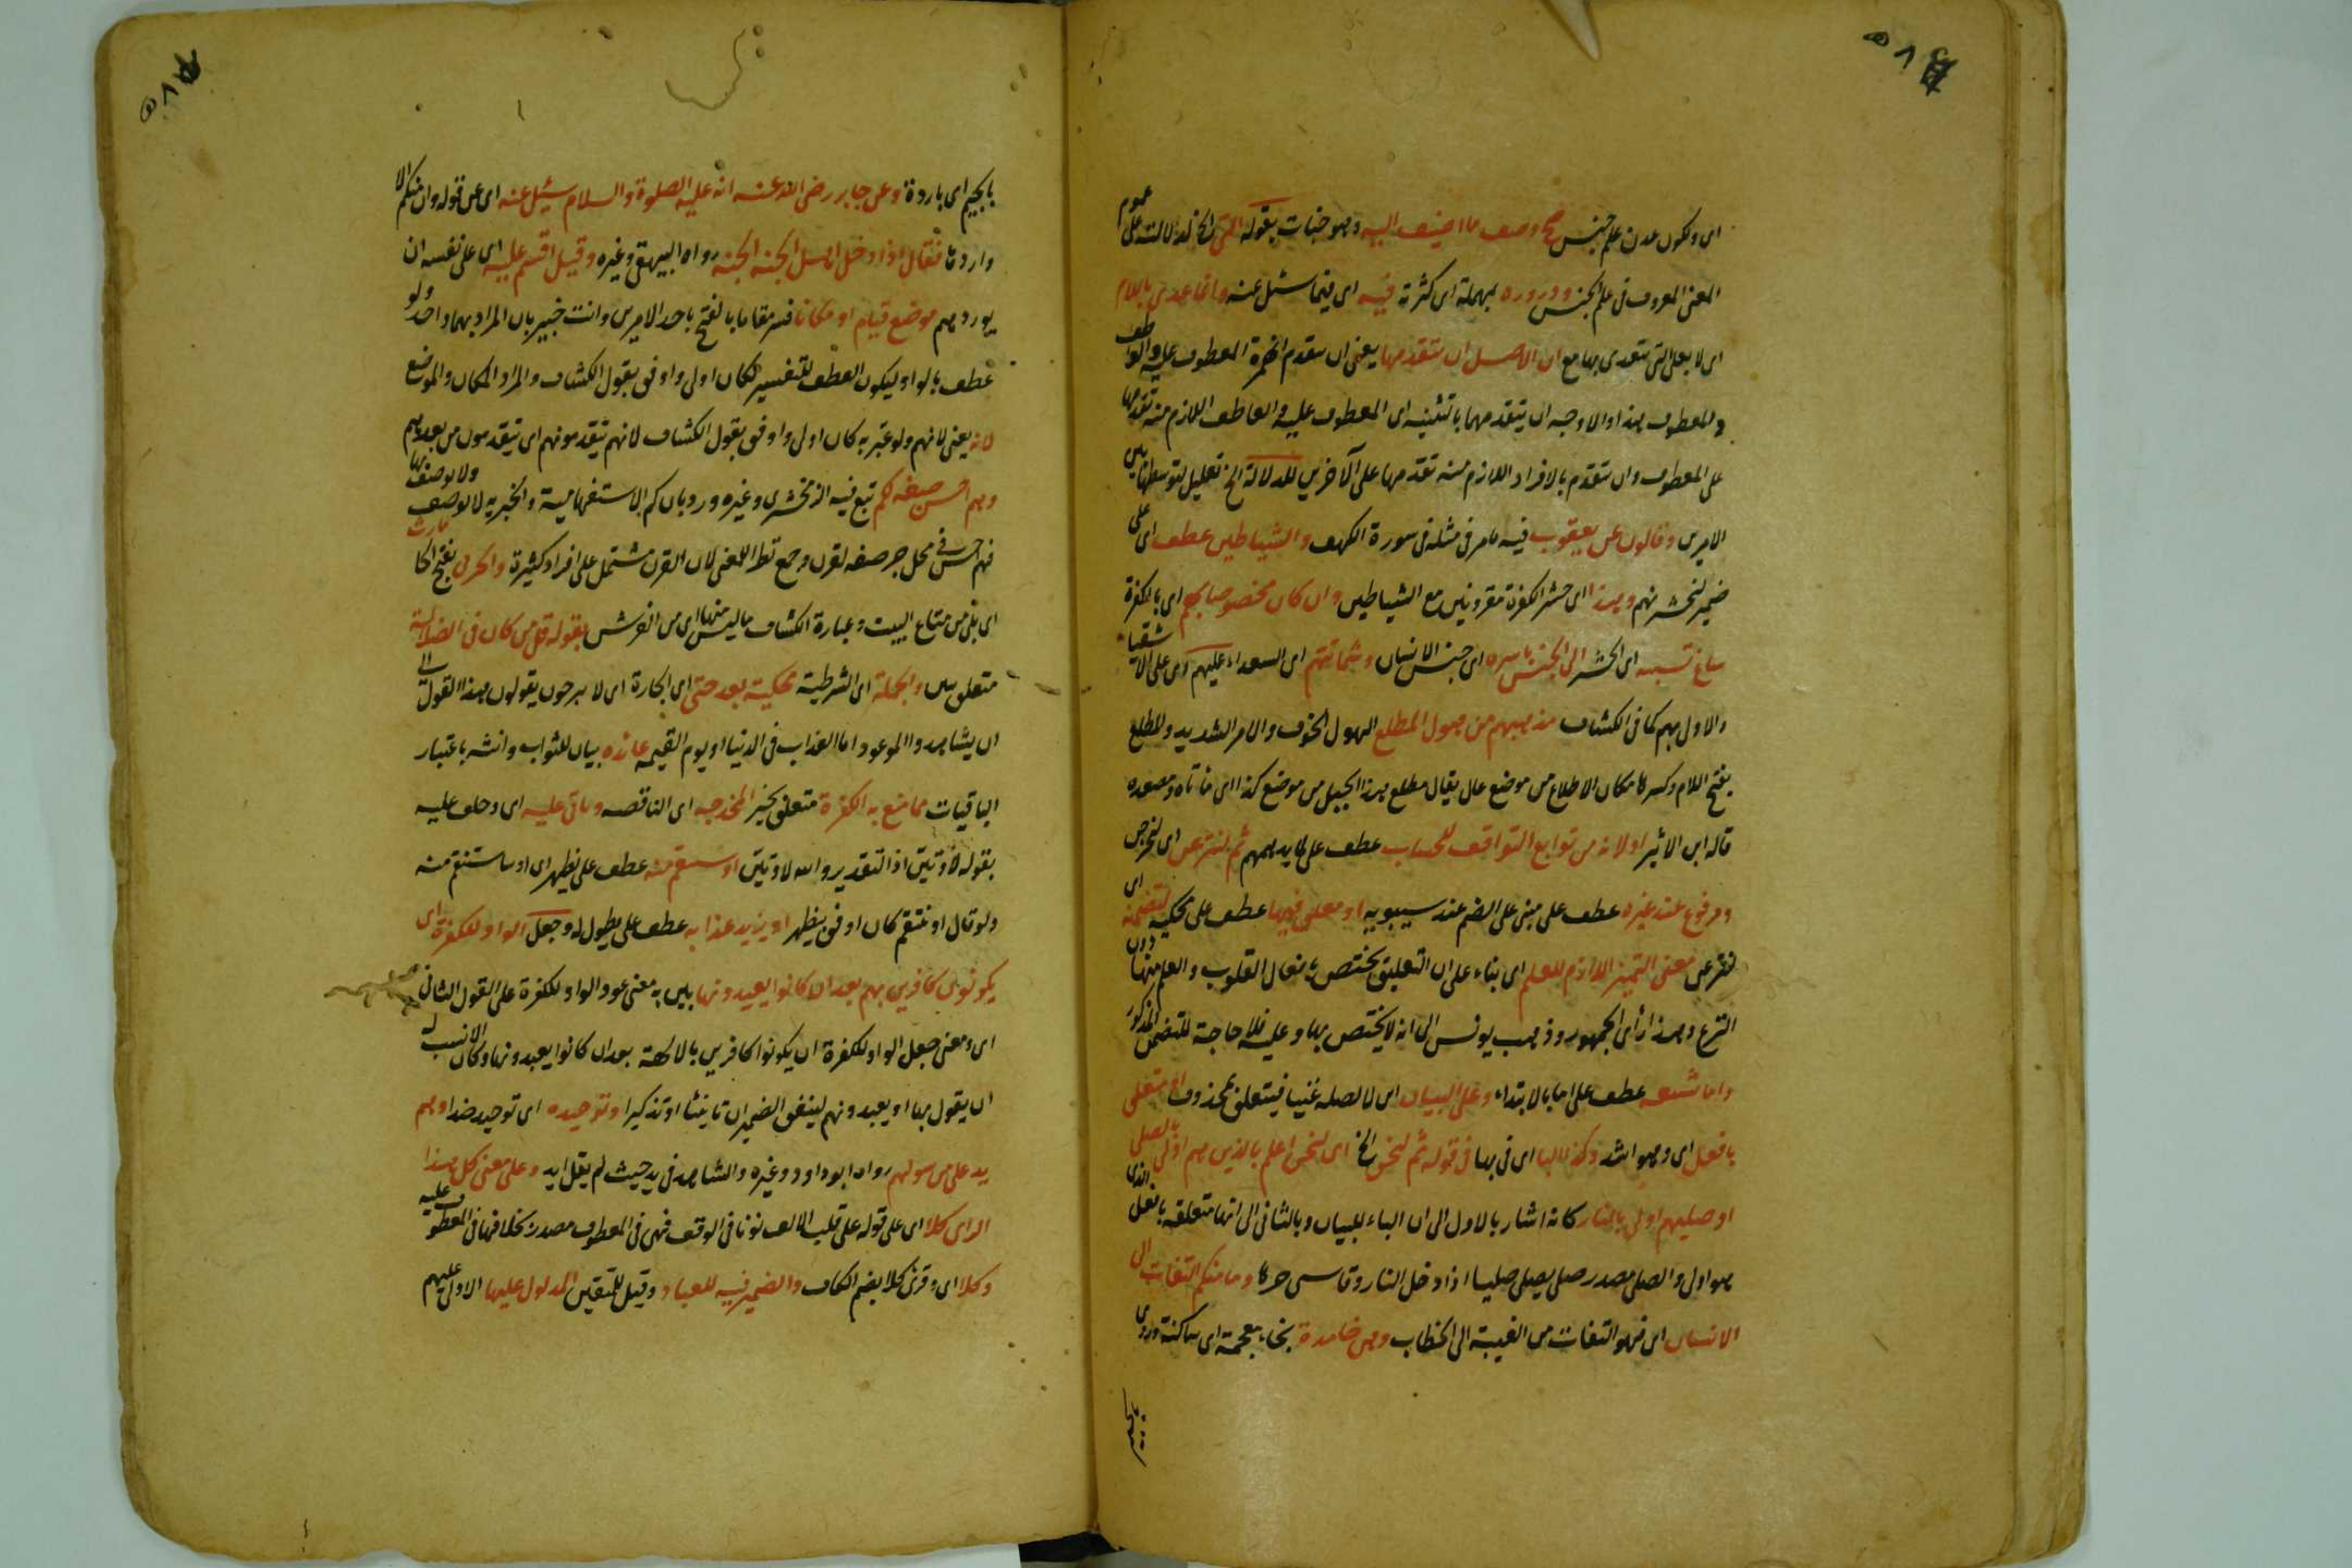 اى ولكون عدن علم جنس صح وصف ما اضيف اليه وهو جنات بقوله التى الخ لدلالته على عموم
المعنى المعروف فى علم الجنس ودروره بمهملة اى كثرته فيه اى فيما سئل عنه وانما عدى باللام
اى لا بعلى التى يتعدى بها مع ان الاصل ان يتقدمها يعنى ان يتقدم الهمزة المعطوف عليه والعاطف
والمعطوف هذا والاوجه ان يتقدمهما بالتثنية اى المعطوف عليه والعاطف اللازم منه تقدمها
على المعطوف وان يتقدم بالافراد اللازم منه تقدمها على الآخرين للدلالة الخ تعليل لتوسطها بين
الامرين وقالون عن يعقوب فيه ما مر فى مثله فى سورة الكهف والشياطين عطف اى على
ضمير لنحشرنهم وهذا اى حشر الكفرة مقرونين مع الشياطين وان كان مخصوصا بهم اى بالكفرة
ساغ نسبته اى الحشر الى الجنس باسره اى جنس الانسان وشماتتهم اى السعداء عليهم اى على الاشقياء
والاول بهم كما فى الكشاف من هول المطلع الهول الخوف والامر الشديد والمطلع
بفتح اللام وكسرها مكان الاطلاع من موضع عال يقال مطلع هذا الجبل من موضع كذا اى مأتاه ومصعده
قاله ابن الاثير او لانه من توابع التواقف للحساب عطف على لما يدهمهم ثم لننزعن اى لنخرجن
ومرفوع عند غيره عطف على مبنى على الضم عند سيبويه او معلق عنها عطف على محكية لتضمنه اى
لننزعن معنى التمييز اللازم للعلم اى بناء على ان التعليق يختص بافعال القلوب والعلم منها دون
النزع وهذا رأى الجمهور وذهب يونس الى انه لا يختص بها وعليه فلا حاجة للتضمن المذكور
واما شيعة عطف على اما بالابتداء وعلى للبيان اى لا لصلة عتيا فيتعلق بمحذوف او متعلق
بافعل اى وهو اشد وكذا الباء اى فى بها فى قوله ثم لنحن الخ اى لنحن اعلم بالذين هم اولى بالصلى
او صليهم اولى بالنار كانه اشار بالاول الى ان الباء للبيان وبالثانى الى انها متعلقة بافعل الذى
هو اولى والصلى مصدر صلى يصلى صليا اذا دخل النار وقاسى حرها وما منكم التفات الى
الانسان اى فهو التفات من الغيبة الى الخطاب وهى خامدة بخاء معجمة اى ساكنة وروى
بالجيم اى باردة وعن جابر رضى الله عنه انه عليه الصلوة والسلام سئل عنه اى عن قوله وان منكم الا
واردها فقال اذا دخل اهل الجنة الجنة رواه البيهقى وغيره وقيل اقسم عليه اى على نفسه ان
يوردهم موضع قيام او مكانا فسر مقاما بالفتح باحد الامرين وانت خبير بان المراد بهما واحد ولو
عطف بالواو ليكون العطف للتفسير لكان اولى واوفق بقول الكشاف والمراد المكان والموضع
لانه يعنى لانهم ولو عبر به كان اولى واوفق بقول الكشاف لانهم يتقدمونهم اى يتقدمون من بعدهم
وهم احسن صفة لكم تبع فيه الزمخشرى وغيره ورد بان كم الاستفهامية والخبرية لا توصف ولا يوصف بها
فهم احسن فى محل جر صفة لقرن وجمع نظرا للمعنى لان القرن مشتمل على افراد كثيرة والخرثى بضم الخا
اى بقى من متاع البيت وعبارة الكشاف ما لبس منها اى من الفرش بقوله قل من كان فى الضلالة
متعلق بين والجملة اى الشرطية محكية بعد حتى اى الجارة اى لا يبرحون يقولون هذا القول الى
ان يشاهدوا الموعود اما العذاب فى الدنيا او يوم القيمة عائده بيان للثواب وانثه باعتبار
الباقيات مما متع به الكفرة متعلق بخير المخدجة اى الناقصة وتالى عليه اى وحلف عليه
بقوله لاوتين اذ التقدير والله لاوتين او سننتقم منه عطف على نظهر اى او سانتقم منه
ولو قال او ننتقم كان اوفق بنظهر او يزيد عذابه عطف على يطول له وجعل الواو للكفرة اى
يكونون كافرين بهم بعد ان كانوا يعبدونها بين به معنى عود الواو للكفرة على القول الثانى
اى ومعنى جعل الواو للكفرة ان يكونوا كافرين بالآلهة بعد ان كانوا يعبدونها وكان الانسب له
ان يقول بها او يعبدونهم ليتفق الضميران تانيثا او تذكيرا وتوحيده اى توحيد ضدا وهم
يد على من سواهم رواه ابو داود وغيره والشاهد فى يد حيث لم يقل ايد وعلى معنى كل هذا
الراى كلا اى على قوله على قلب الالف نونا فى الوقف فهى فى المعطوف مصدر بخلافها فى المعطوف عليه
وكلا اى وقرئ كلا بضم الكاف والضمير فيه للعباد وقيل للمتقين المدلول عليها الاولى عليهم